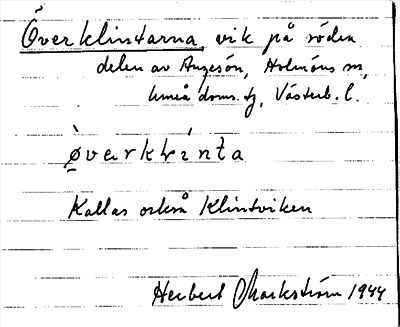 Överklintarna, vik på södra
delen av Ängesön, Holmöns sn,
Umeå doms. tg, Västerb. l.
øvarkl̀ínta
Kallas också Klintviken
Herbert Markström 1944